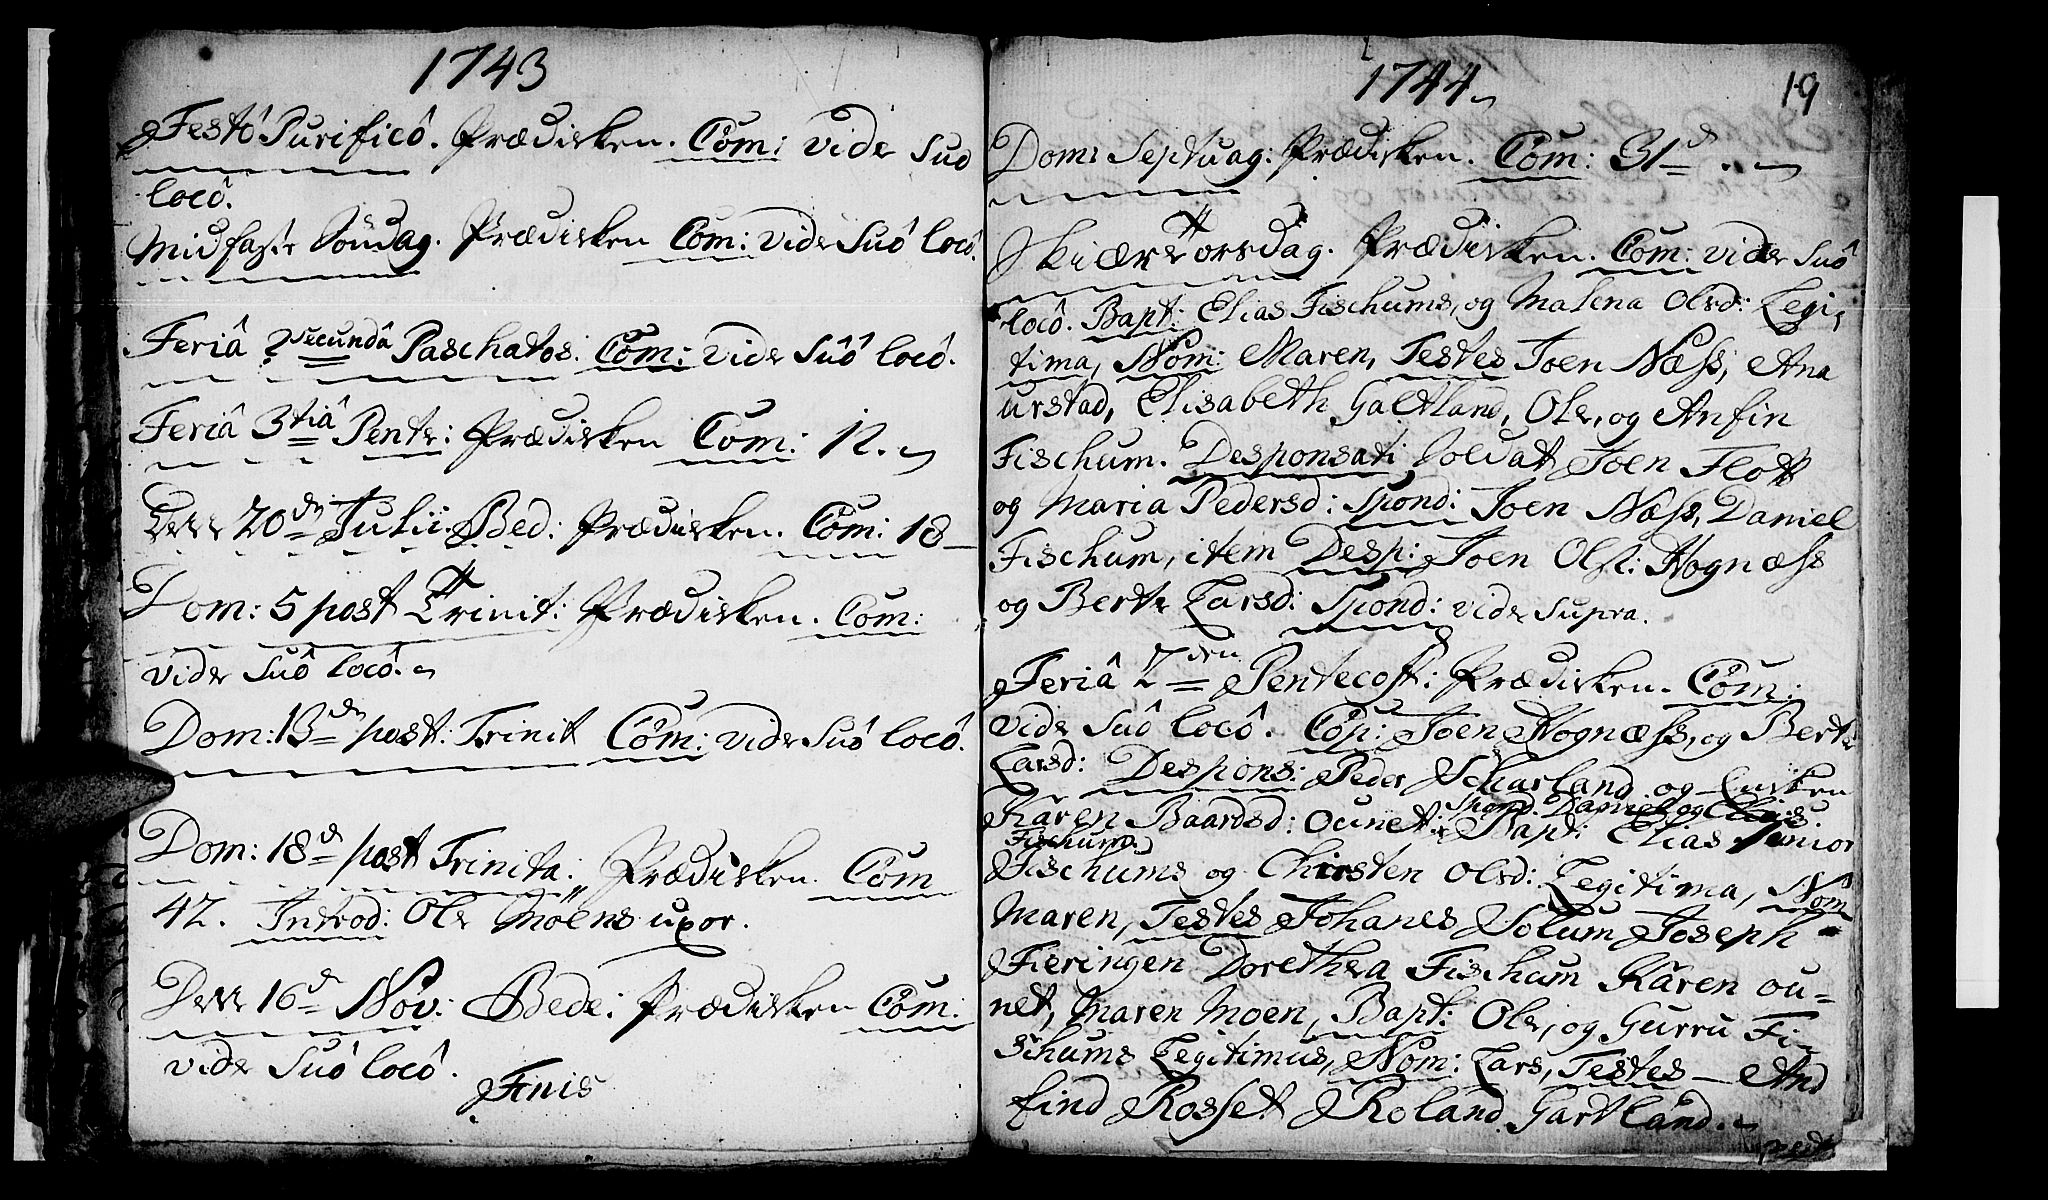 1743
Festô Purificô. Prædiken. Com: vide suo
locô.
Midfaste Söndag. Prædisken Com: vide Suô locô.
Feriâ 2 secundâ Paschatos: Com: vide Suô locô.
Feriâ 3tiâ Pente: Prædisken Com: 12.
Den 20de Julii Bed: Prædisken. Com: 18
Dom: 5 post Trinit: Prædisken. Com:
vide Suô locô.
Dom: 13de post: Trinit Com: vide Suô locô.
Dom: 18d post Trinita: Prædisken. Com
42. Introd: Ole Möens uxor.
Den 16d Nov: Bede: Prædisken Com:
vide Suô locô.
Finis
1744
19
Dom: Septuag: Prædisken. Com: 31d
Skiærtorsdag. Prædisken. Com: vide Suô
locô. Bapt: Elias Fischums, og Malena Olsd: Legi,
tima, Nom: Maren, Testes Joen Næss, Ana
urstad, Elisabeth Galtland, Ole, og Anfin
Fischum. Desponsati Soldat Joen Flott
og Maria Pedersd: Spond: Joen Næss, Daniel
Fischum, item Desp: Joen Ols: Hognæss
og Berte Larsd: Spond: vide Supra.
Feriâ 2den Pentecost: Prædisken. Com:
vide Suô locô. Cop: Joen Hognæss, og Berte
Larsd: Despons: Peder Scharland og Enken
Karen Baardsd: Ounet: Spond. Daniel og Elias
Fischum. Bapt: Elias Junior
Fischums og Chirsten Olsd: Legitima, Nom
Maren, Testes Johanes Solum Joseph
Fieringen Dorethea Fischum Karen ou=
net, Maren Moen, Bapt: Ole, og Gurru Fi,
schums Legitimus, Nom: Lars, Testes And
find Rosset Roland Gartland.